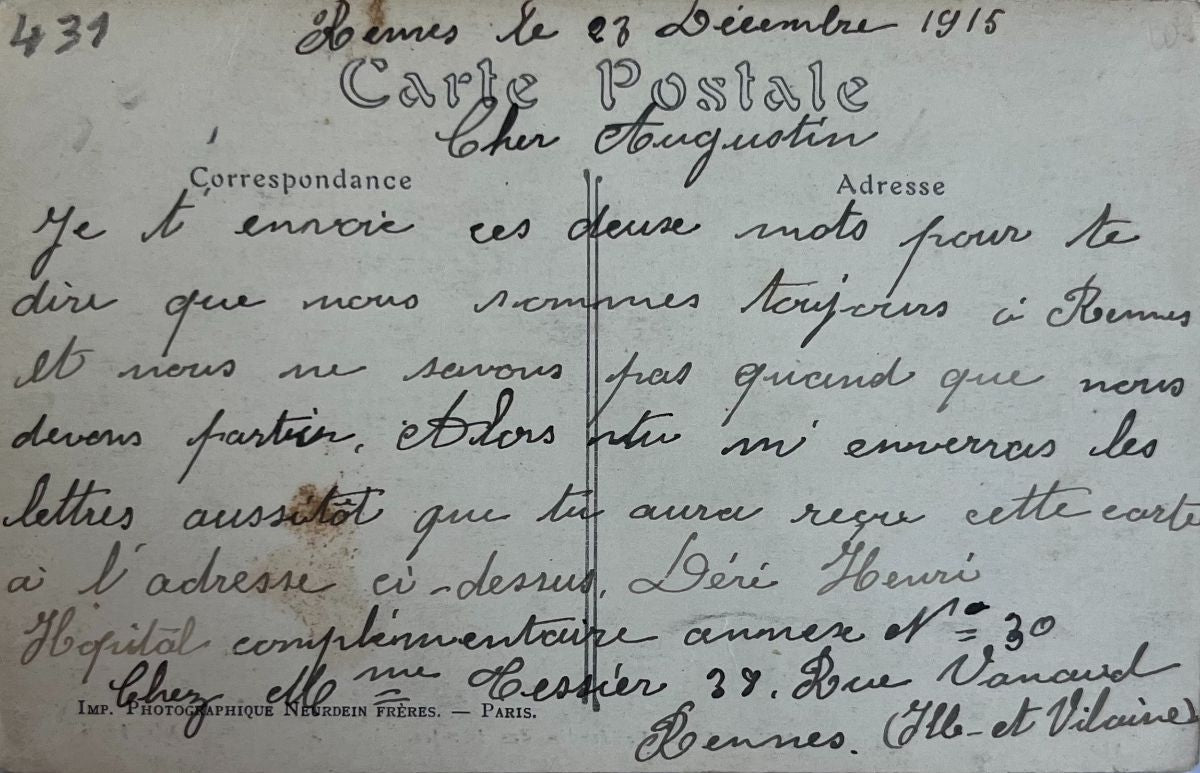 431
Rennes le 23 Décembre 1915
Carte Postale
Cher Augustin
Correspondance
Adresse
Je t'envoie ces deux mots pour te
dire que nous sommes toujours à Rennes
et nous ne savons pas quand que nous
devons partir. Alors tu m'enverras les
lettres aussitôt que tu aura reçue cette carte
à l'adresse ci-dessus. Déré Henri
Hopital complémentaire annexe N° 30
Chez Mme Tessier 38. Rue
Imp. Photographique Neurdein frères. — Paris.
Rennes. (Ille-et Vilaine)